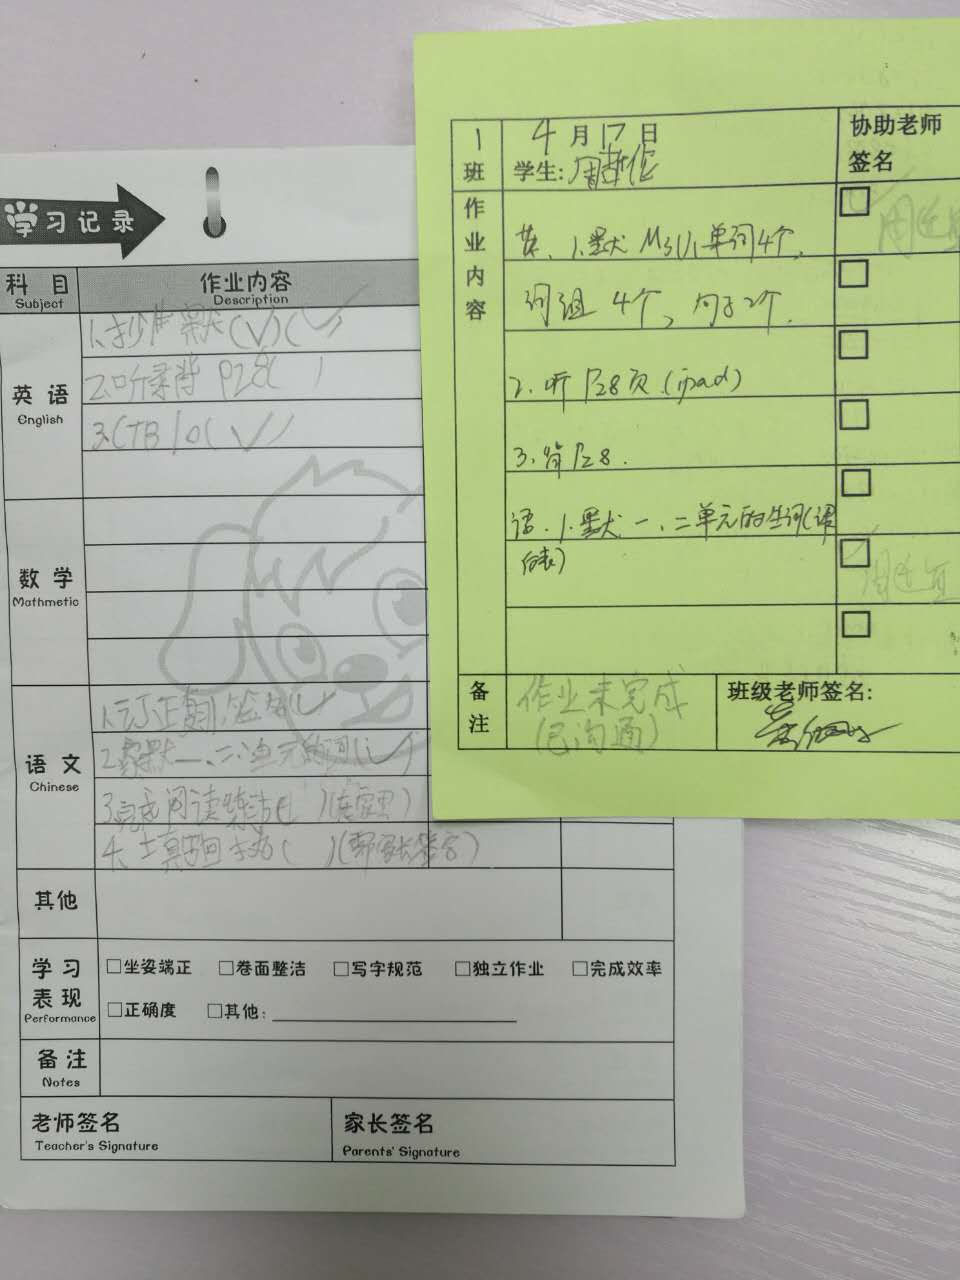 学习记录
科目 作业内容
Subject Description
英语
English
1.抄作默(✓)(✓
2.听录背 P28( )
3.CTB 10(✓)
数学
Mathmetic
语文
Chinese
1.订正
2.家默一、二单元的词(✓)
3.完成阅读
4. )(需家长签字)
其他
学习表现
Performance
□坐姿端正 □卷面整洁 □写字规范 □独立作业 □完成效率
□正确度 □其他:
备注
Notes
老师签名 家长签名
Teacher's Signature Parents' Signature
1班 4月17日 协助老师
学生: 签名
作业内容
英、1.默 M3U1单词4个,
词组 4个、句子2个.
2.听 P28页.(ipad)
3.背 P28.
语.1.默一、二单元的生词(课
后表)
备注 作业未完成 班级老师签名:
(已沟通)